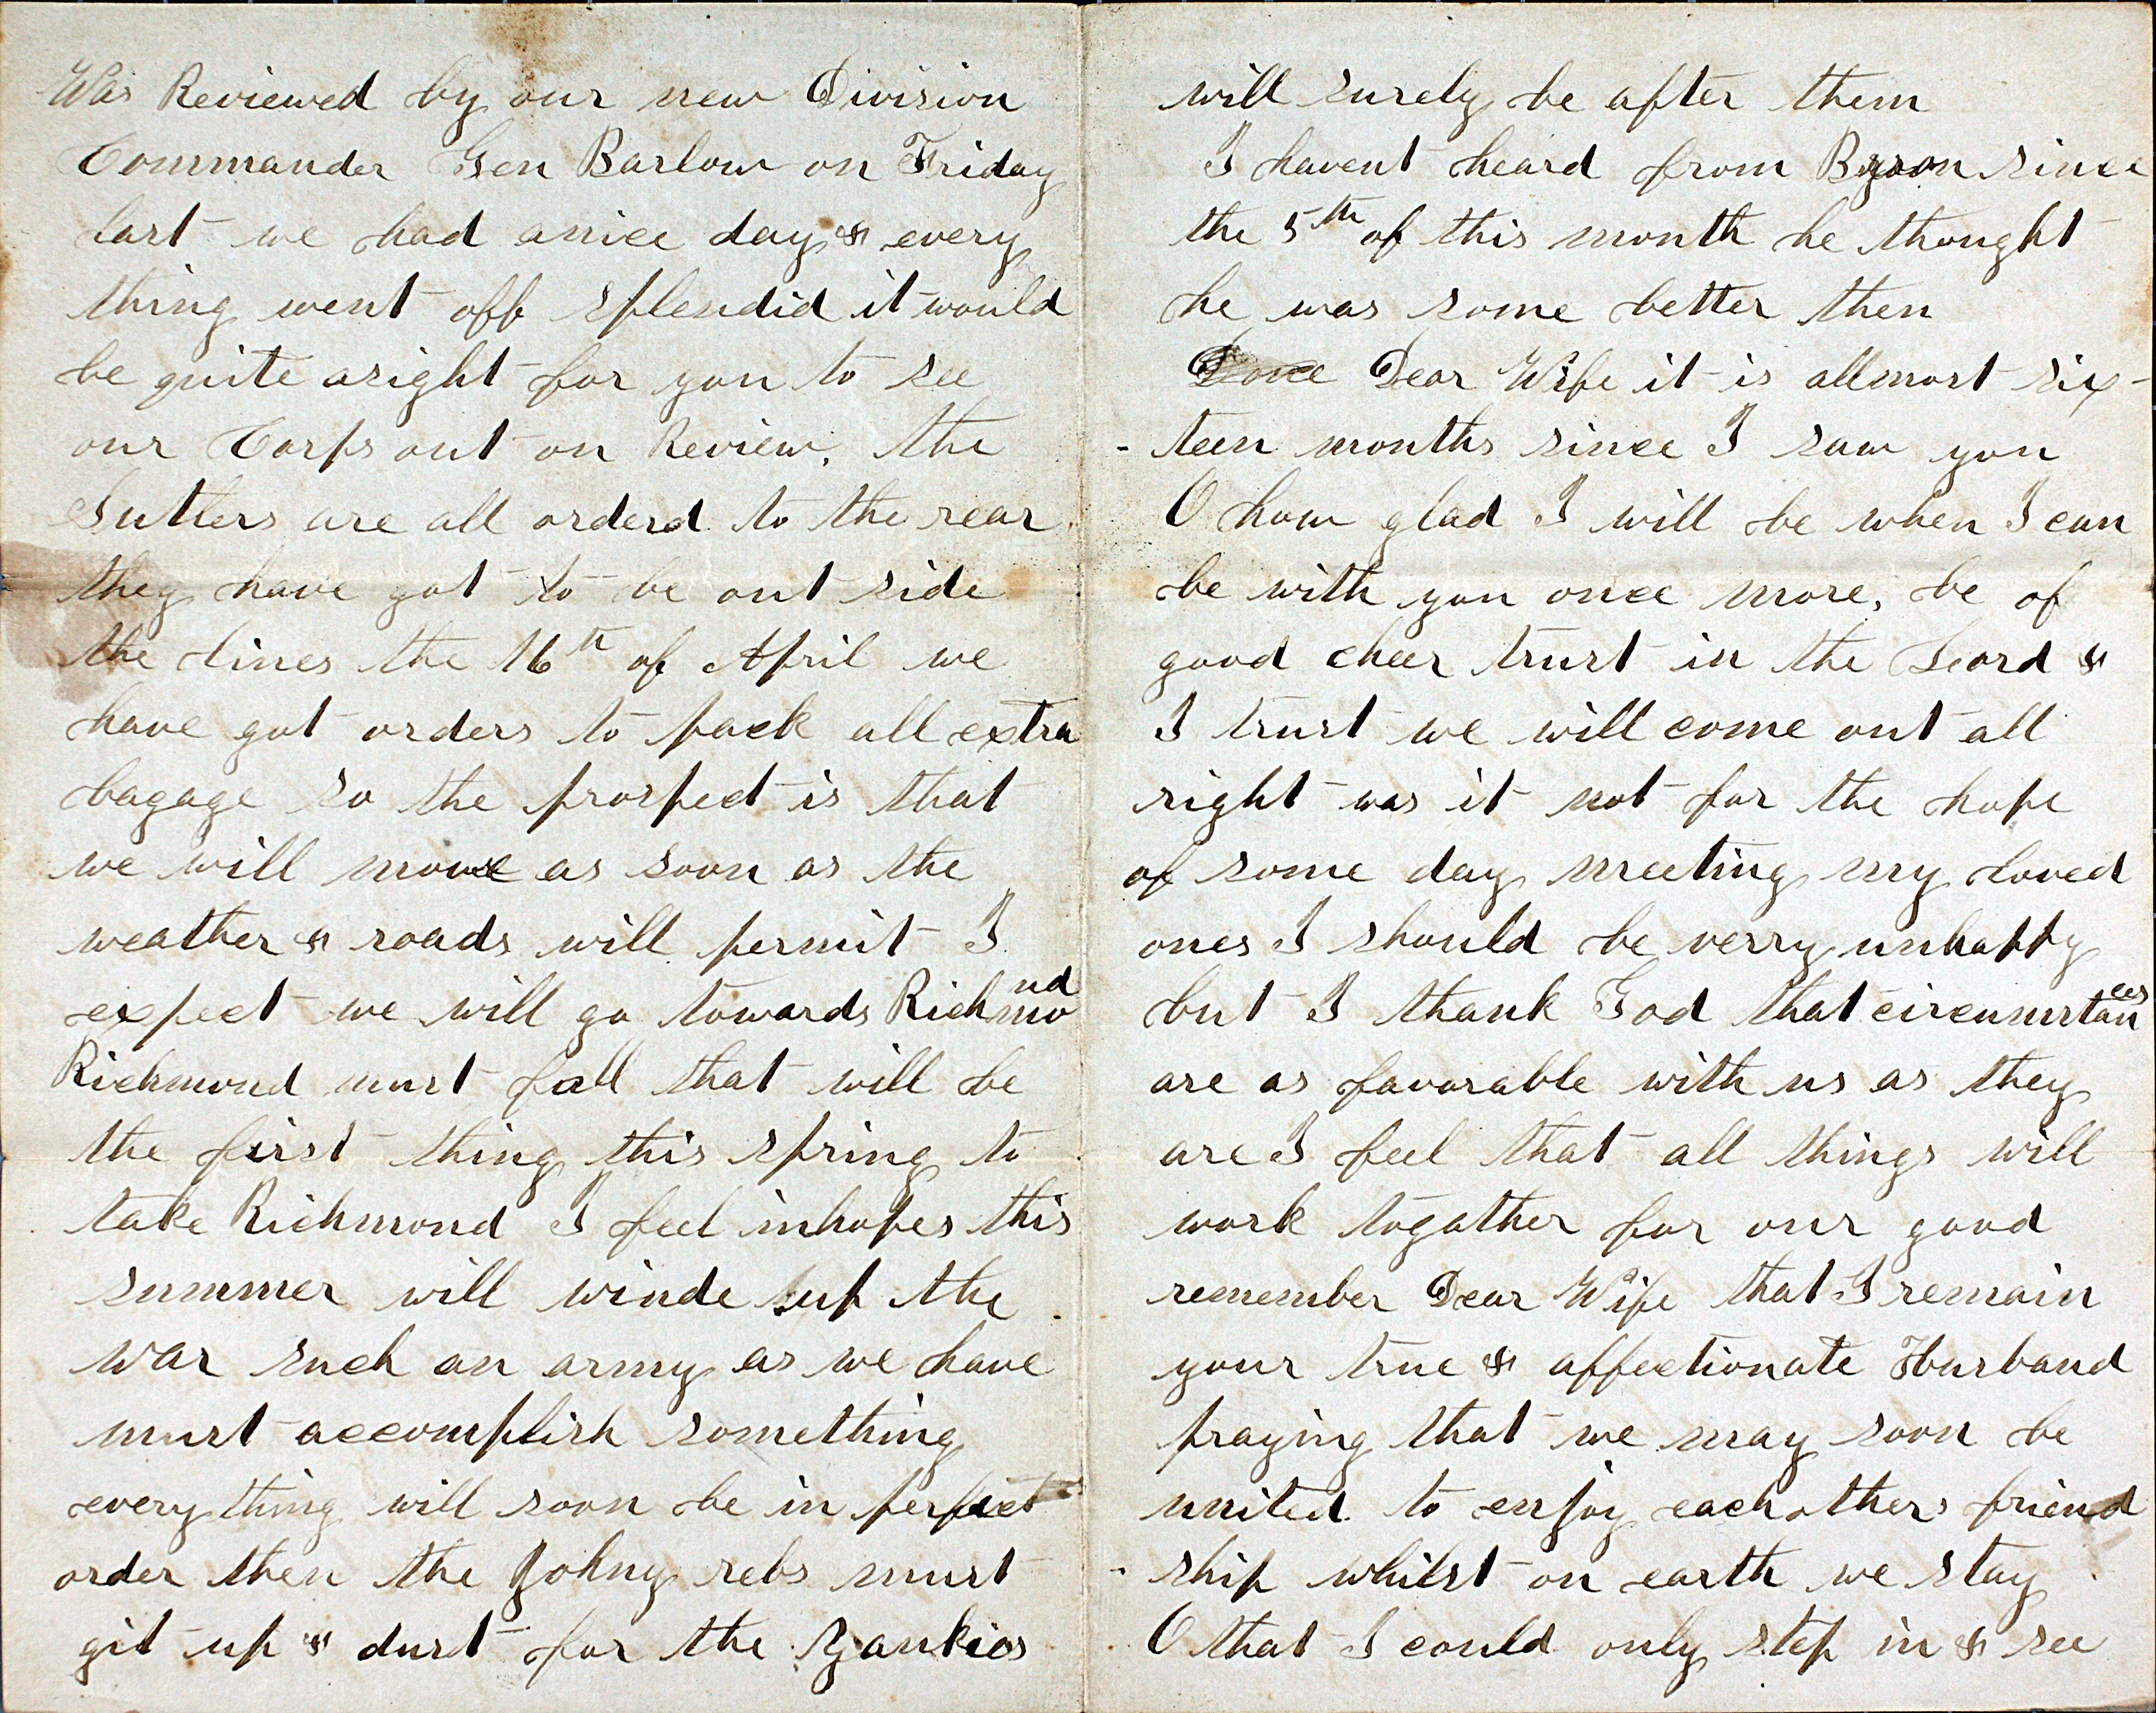 Was Reviewed by our new Division
Commander Gen Barlow on Friday
last we had anice day & every
thing went off splendid it would
be quite asight for you to see
our Corps out on Review. the
Sutlers are all orderd to the rear
they have got to be out side
the lines the 16th of April we
have got orders to pack all extra
bagage so the prospect is that
we will move as soon as the
weather & roads will permit I
expect we will go towards Richmond
Richmond must fall that will be
the first thing this spring to
take Richmond I feel inhopes this
summer will winde up the
war such an army as we have
must accomplish something
every thing will soon be in perfect
order then the Johny rebs must
git up & dust for the Yankies
will surely be after them
I havent heard from Byron since
the 5th of this month he thought
he was some better then
Dear Wife it is allmost six-
-teen months since I saw you
O how glad I will be when I can
be with you once more, be of
good cheer trust in the Lord &
I trust we will come out all
right was it not for the hope
of some day meeting my loved
ones I should be verry unhappy
but I thank God that circumstances
are as favorable with us as they
are I feel that all things will
work togather for our good
remember Dear Wife that I remain
your true & affectionate Husband
praying that we may soon be
united to enjoy each others friend
-ship whilst on earth we stay
O that I could only step in & see